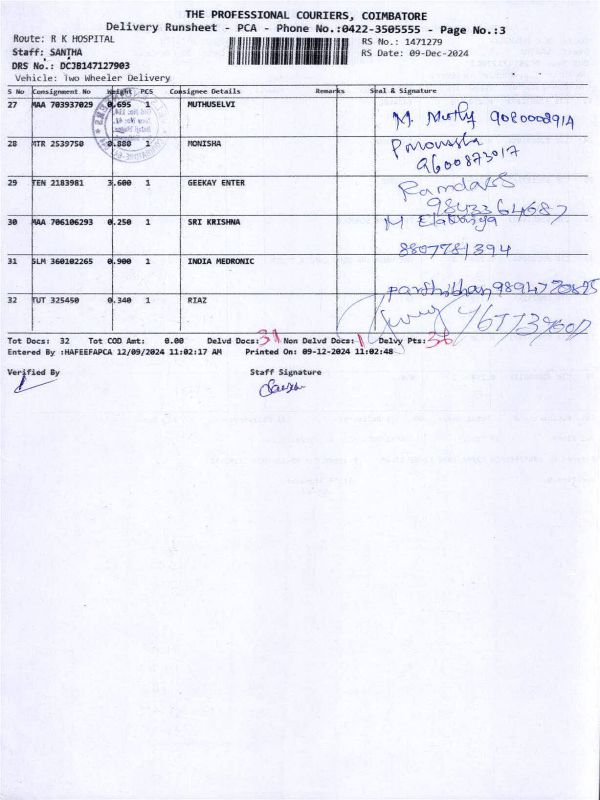 THE PROFESSIONAL COURIERS, COIMBATORE
Delivery Runsheet - PCA - Phone No.:0422-3505555 - Page No.:3
Route: R K HOSPITAL
RS No.: 1471279
Staff: SANTHA
RS Date: 09-Dec-2024
DRS No.: DCJB147127903
Vehicle: Two Wheeler Delivery
S No Consignment No Weight PCS Consignee Details Remarks Seal & Signature
27 MAA 703937029 0.695 1 MUTHUSELVI
M. Muthy
28 MTR 2539750 0.880 1 MONISHA
9600873017
29 TEN 2183981 3.600 1 GEEKAY ENTER
Ramdass
9843364687
30 MAA 706106293 0.250 1 SRI KRISHNA
8807781394
31 SLM 360102265 0.900 1 INDIA MEDRONIC
32 TUT 325450 0.340 1 RIAZ
Tot Docs: 32 Tot COD Amt: 0.00 Delvd Docs: 31 Non Delvd Docs: 1 Delvy Pts:
Entered By :HAFEEFAPCA 12/09/2024 11:02:17 AM Printed On: 09-12-2024 11:02:48
Verified By Staff Signature